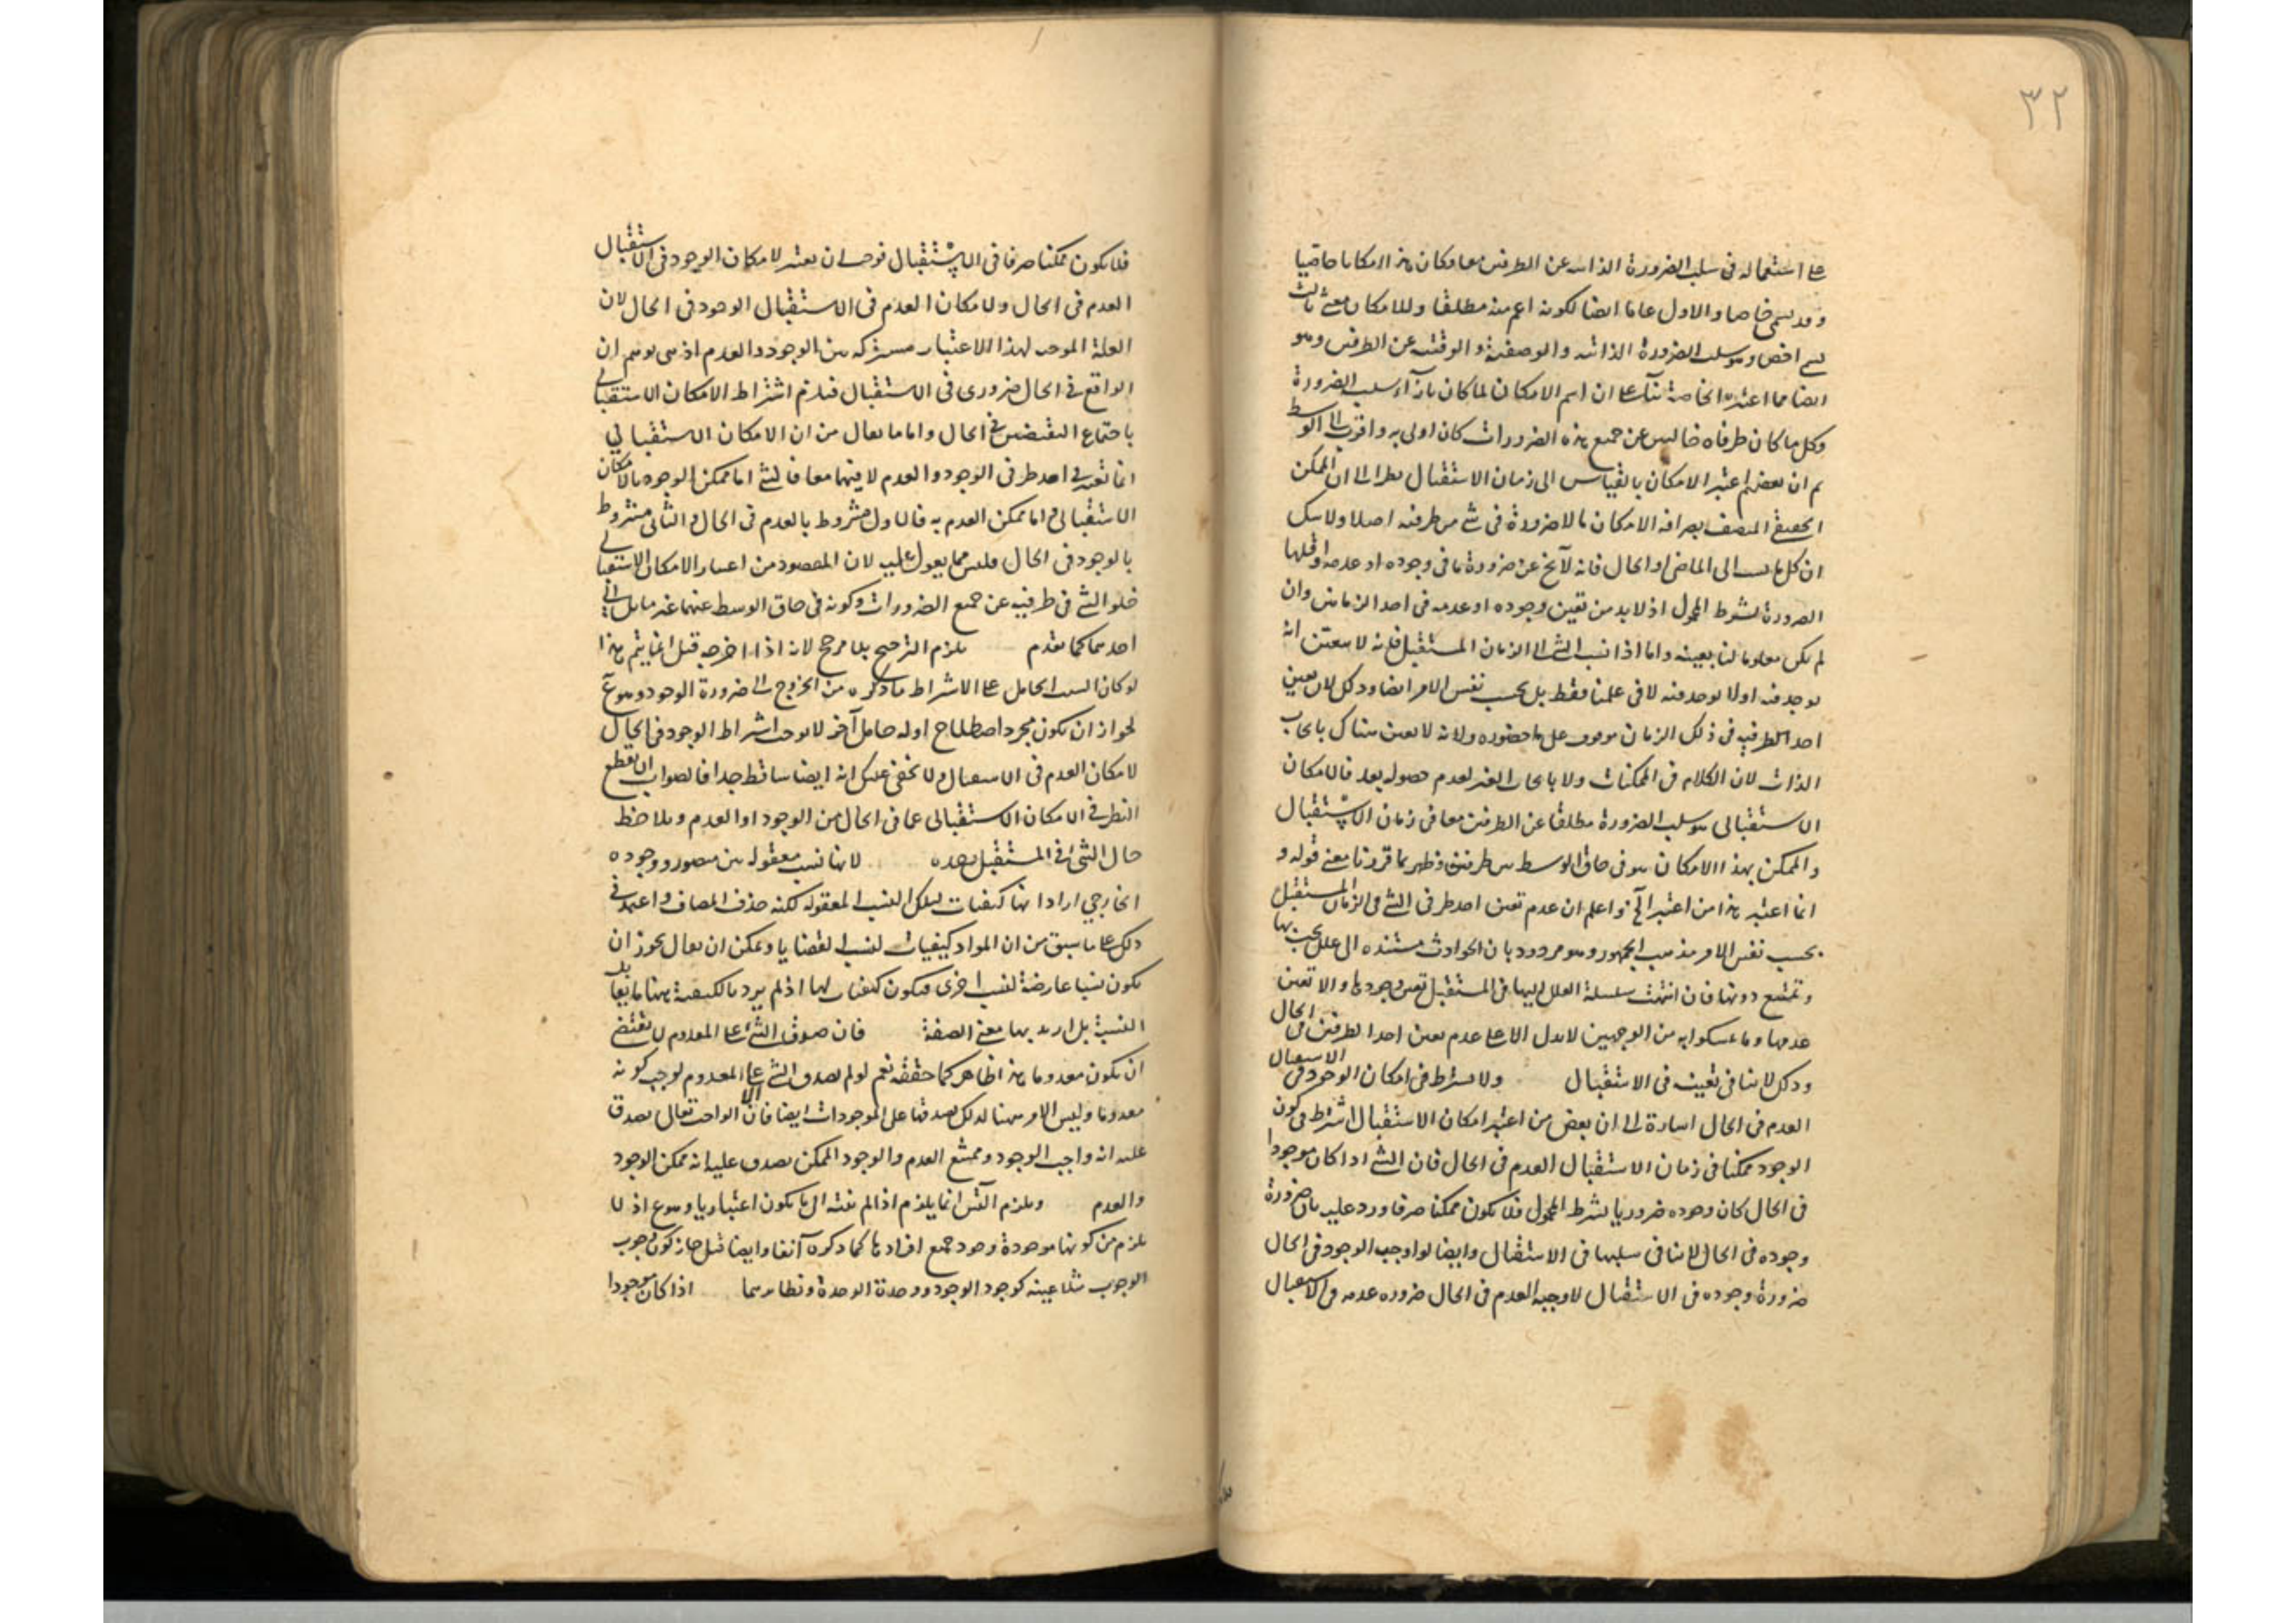 ٣٢
على استعماله فى سلب الضرورة الذاتيه عن الطرفين معا وكان هذا امكانا خاصيا
وقد يسمى خاصا والاول عاما ايضا لكونه اعم منه مطلقا وللامكان معنى ثالث
يسمى اخص وهو سلب الضرورة الذاتيه والوصفية والوقتيه عن الطرفين وهو
ايضا مما اعتبره الخاصة بناء على ان اسم الامكان لما كان بازآء سلب الضرورة
وكل ما كان طرفاه خاليين عن جميع هذه الضرورات كان اولى به واقرب الى الوسط
ثم ان بعضهم اعتبر الامكان بالقياس الى زمان الاستقبال نظرا الى ان الممكن
الحقيقى المتصف بصرافة الامكان ما لا ضرورة فى شئ من طرفيه اصلا ولا شك
ان كل ما نسب الى الماضى او الحال فانه لا يخ عن ضرورة ما فى وجوده او عدمه واقلها
الضرورة بشرط المحمول اذ لا بد من تعين وجوده او عدمه فى احد الزمانين وان
لم يكن معلوما لنا بعينه واما اذا نسب الشئ الى الزمان المستقبل فانه لا يتعين انه
يوجد فيه او لا يوجد فيه لا فى علمنا فقط بل بحسب نفس الامر ايضا وذلك لان تعين
احد الطرفين فى ذلك الزمان موقوف على حضوره ولانه لا تعين هناك بايجاب
الذات لان الكلام فى الممكنات ولا بايجاب الغير لعدم حصوله بعد فالامكان
الاستقبالى هو سلب الضرورة مطلقا عن الطرفين معا فى زمان الاستقبال
والممكن بهذا الامكان هو فى حاق الوسط بين طرفيه وظهر بما قررنا معنى قوله و
انما اعتبر هذا من اعتبر الخ واعلم ان عدم تعين احد طرفى الشئ فى الزمان المستقبل
بحسب نفس الامر مذهب الجمهور وهو مردود بان الحوادث مستنده الى علل يجب بها
وتمتنع دونها فان انتهت سلسلة العلل اليها فى المستقبل تعين وجودها والا تعين
عدمها وما تمسكوا به من الوجهين لا يدل الا على عدم تعين احد الطرفين فى الحال
وذلك لا ينافى تعينه فى الاستقبال ولا يشترط فى امكان الوجود فى الاستقبال
العدم فى الحال اشارة الى ان بعض من اعتبر امكان الاستقبال اشترط فى كون
الوجود ممكنا فى زمان الاستقبال العدم فى الحال فان الشئ اذا كان موجودا
فى الحال كان وجوده ضروريا بشرط المحمول فلا يكون ممكنا صرفا ورد عليه بان ضرورة
وجوده فى الحال لا ينافى سلبها فى الاستقبال وايضا لو اوجب الوجود فى الحال
ضرورة وجوده فى الاستقبال لاوجب العدم فى الحال ضروره عدمه فى الاستقبال
فلا يكون ممكنا صرفا فى الاستقبال فوجب ان يعتبر لامكان الوجود فى الاستقبال
العدم فى الحال ولامكان العدم فى الاستقبال الوجود فى الحال لان
العلة الموجبه لهذا الاعتبار مشتركه بين الوجود والعدم اذ هى توهم ان
الواقع فى الحال ضرورى فى الاستقبال فيلزم اشتراط الامكان الاستقبالى
باجتماع النقيضين فى الحال واما ما يقال من ان الامكان الاستقبالى
انما يعتبر فى احد طرفى الوجود والعدم لا فيهما معا فالشئ اما ممكن الوجود بالامكان
الاستقبالى واما ممكن العدم به فالاول مشروط بالعدم فى الحال والثانى مشروط
بالوجود فى الحال فليس مما يعول عليه لان المقصود من اعتبار الامكان الاستقبالى
خلو الشئ فى طرفيه عن جميع الضرورات وكونه فى حاق الوسط عنهما غير مايل الى
احدهما كما تقدم يلزم الترجيح بلا مرجح لانه اذا اخرجه قيل انما يتم هذا
لو كان السبب الحامل على الاشتراط ما ذكره من الخروج الى ضرورة الوجود وهو ع
لجواز ان يكون مجرد اصطلاح او له حامل آخر لا يوجب اشتراط الوجود فى الحال
لامكان العدم فى الاستقبال ولا يخفى عليك انه ايضا ساقط جدا فالصواب ان يقطع
النظر فى الامكان الاستقبالى عما فى الحال من الوجود او العدم ويلاحظ
حال الشئ فى المستقبل وحده لانها نسب معقوله بين متصور ووجوده
الخارجي اراد انها كيفيات لتلك النسب المعقوله لكنه حذف المضاف واعتمد فى
ذلك على ما سبق من ان المواد كيفيات لنسب القضايا ويمكن ان يقال يجوز ان
يكون نسبا عارضة لنسب اخرى فيكون كيفيات لها اذ لم يرد بالكيفية ههنا ما يقابل
النسبة بل اريد بها معنى الصفة فان صدق الشئ على المعدوم لا يقتضى
ان يكون معدوما هذا ظاهر كما حققه نعم لو لم يصدق الشئ الا على المعدوم لوجب كونه
معدوما وليس الامر ههنا لذلك لصدقها على الموجودات ايضا فان الواجب تعالى يصدق
عليه انه واجب الوجود وممتنع العدم والوجود الممكن يصدق عليه انه ممكن الوجود
والعدم ويلزم التس انما يلزم اذا لم ينته الى ما يكون اعتباريا وهو ع اذ لا
يلزم من كونها موجودة وجود جميع افرادها كما ذكره آنفا وايضا قيل جاز كون وجوب
الوجوب مثلا عينه كوجود الوجود ووحدة الوحدة ونظائرهما اذا كان موجودا